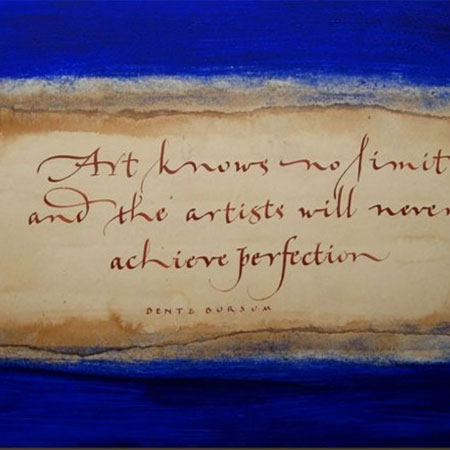 Art knows no limit
and the artists will never
achieve perfection
BENTE BORSUM